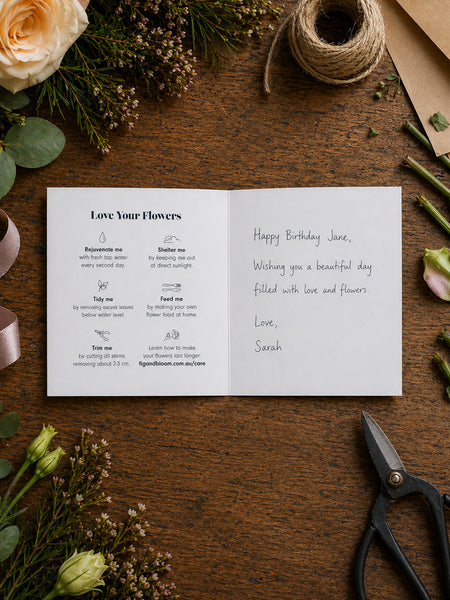 Love Your Flowers
Rejuvenate me
with fresh tap water
every second day.
Shelter me
by keeping me out
of direct sunlight.
Tidy me
by removing excess leaves
below water level.
Feed me
by making your own
flower food at home.
Trim me
by cutting all stems
removing about 2-3 cm.
Learn how to make
your flowers last longer.
figandbloom.com.au/care
Happy Birthday Jane,
Wishing you a beautiful day
filled with love and flowers.
Love,
Sarah